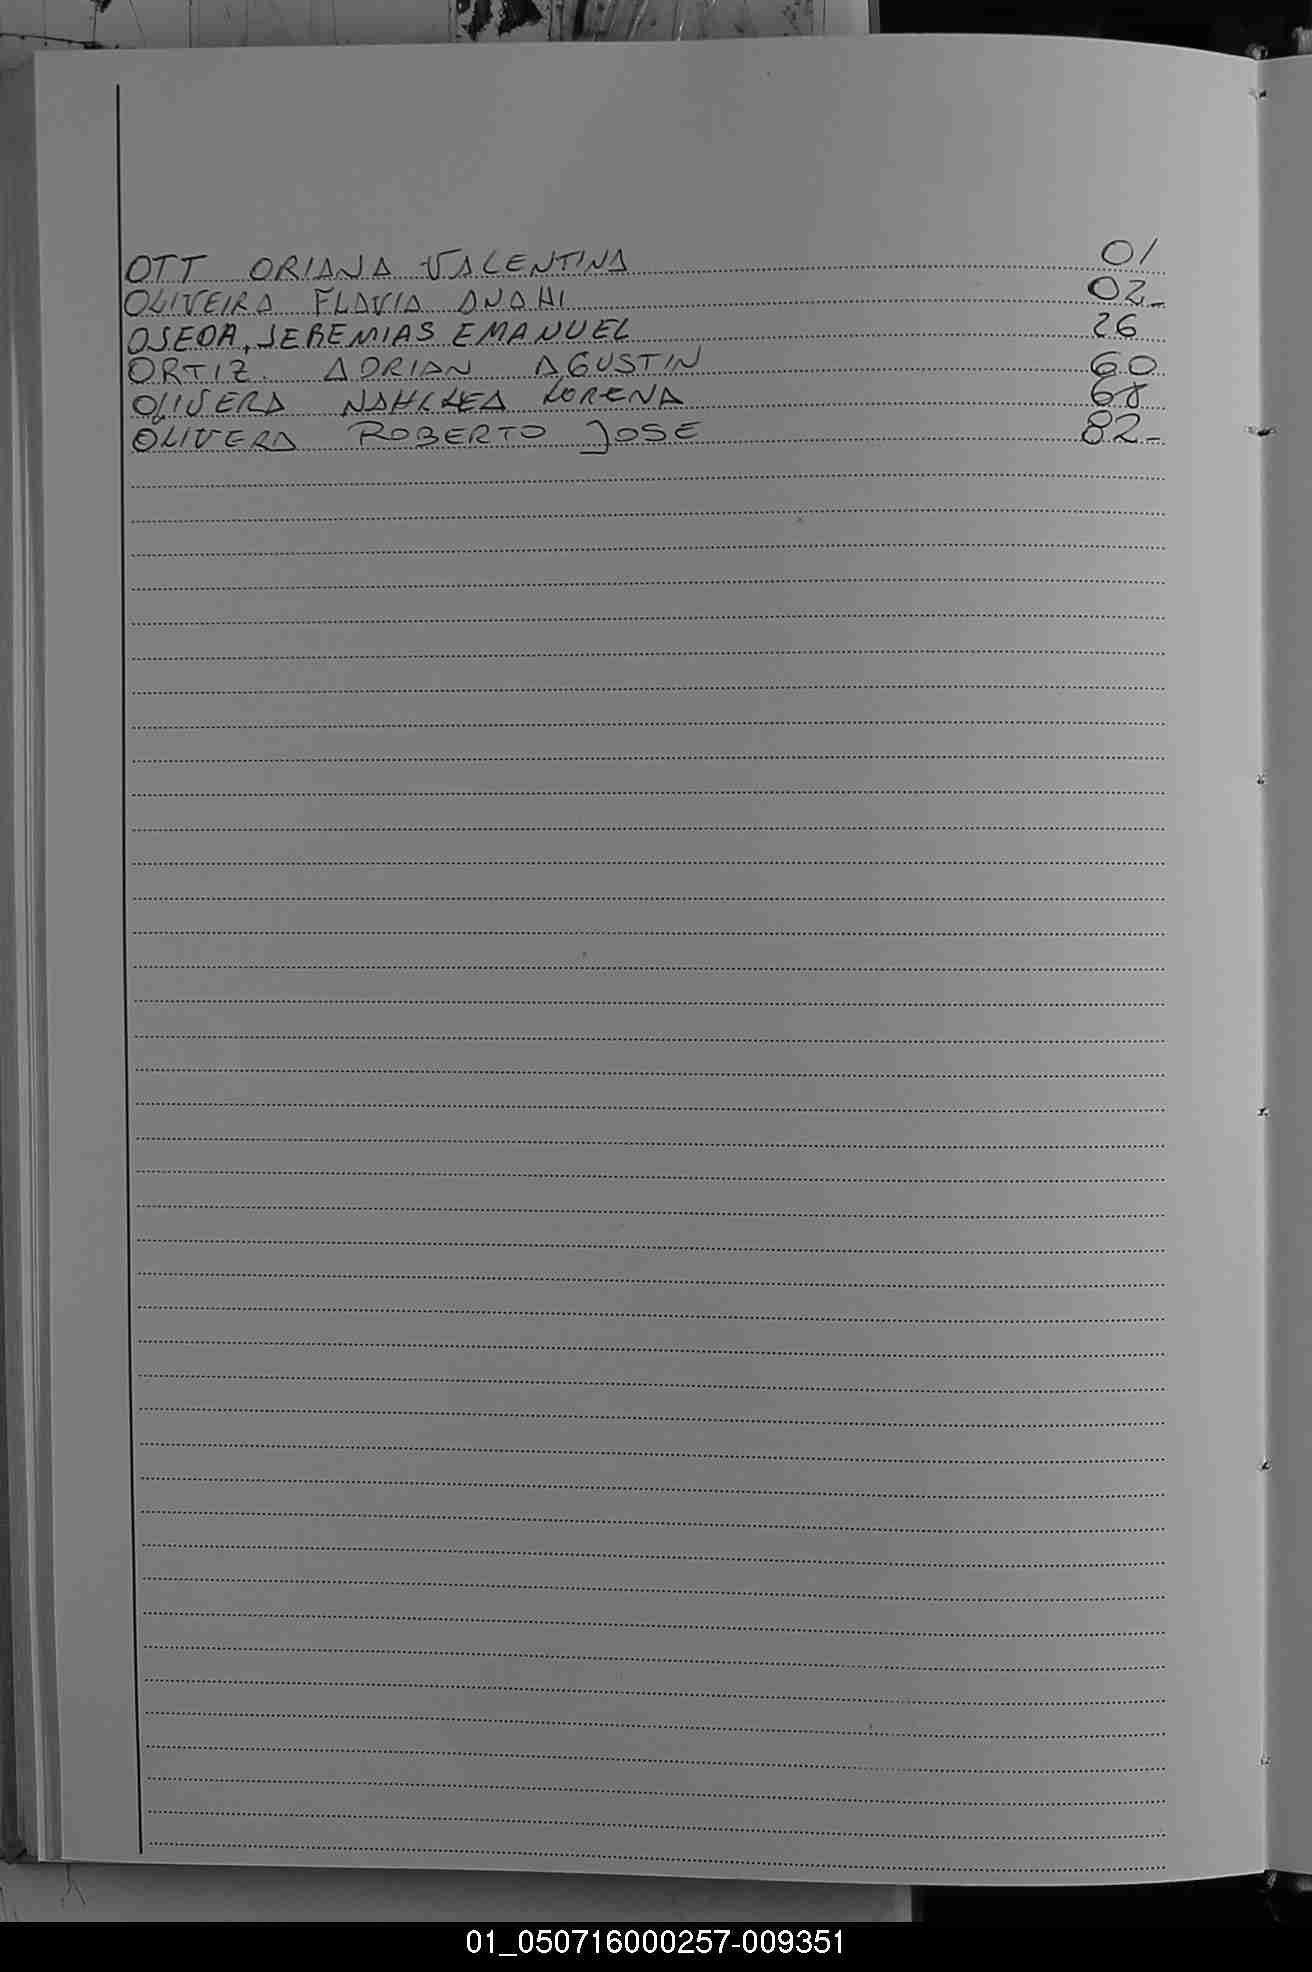 OTT ORIANA VALENTINA 01
OLIVEIRA FLAVIA ANAHI 02-
OJEDA, JEREMIAS EMANUEL 26
ORTIZ ADRIAN AGUSTIN 60
OLIVERA LORENA 68
OLIVERA ROBERTO JOSE 82-
01_050716000257-009351